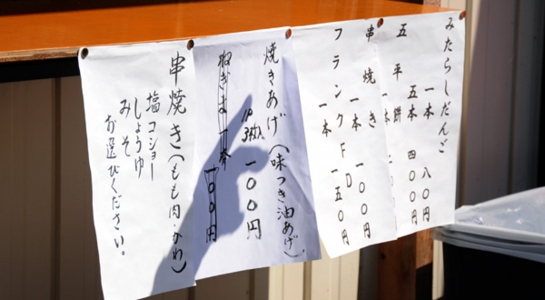 みたらしだんご
一本 八〇円
五本 四〇〇円
五平餅
一本
串焼き
一本 一〇〇円
フランクFD
一本 一五〇円
焼きあげ(味つき油あげ)
1P 3枚入 一〇〇円
ねぎま 一本
一〇〇円
串焼き(もも肉・かわ)
塩コショー
しょうゆ
みそ
お選びください。